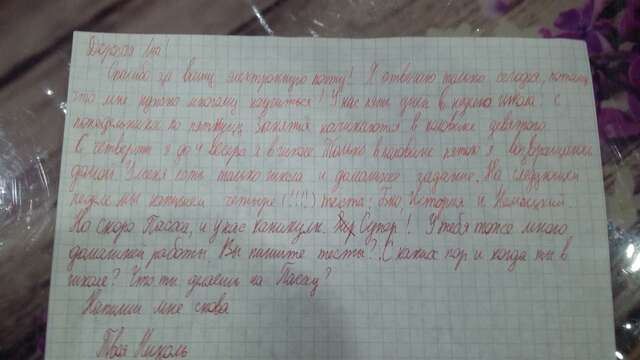 Дорогая Ира!
Спасибо за вашу электронную почту! Я отвечаю только сегодня, потому
что мне нужно многому научиться! У нас пять дней в неделю школа с
понедельника по пятницу. Занятия начинаются в половине девятого.
В четверть я до 4 вечера я в школе. Только в половине пятого я возвращаюсь
домой. У меня есть только школа и домашнее задание. На следующей
неделе мы напишем четыре (!!!) теста: Био, История и Немецкий.
Но скоро Пасха, и у нас каникулы. Супер! У тебя тоже много
домашней работы? Вы пишите тесты? С каких пор и когда ты в
школе? Что ты делаешь на Пасху?
Напиши мне снова
Твоя Николь